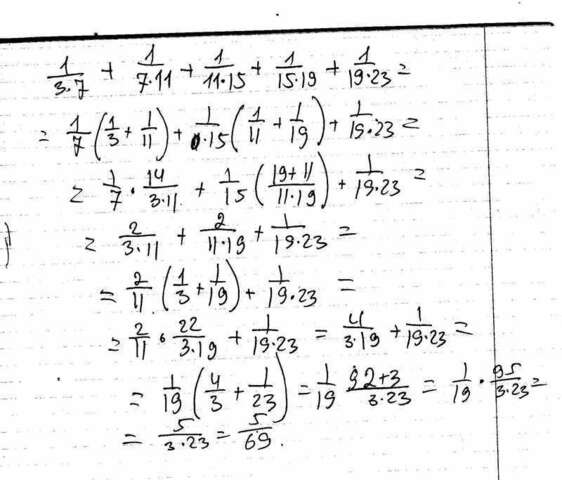 1/(3·7) + 1/(7·11) + 1/(11·15) + 1/(15·19) + 1/(19·23) =
= 1/7 (1/3 + 1/11) + 1/15 (1/11 + 1/19) + 1/(19·23) =
= 1/7 · 14/(3·11) + 1/15 ((19+11)/(11·19)) + 1/(19·23) =
= 2/(3·11) + 2/(11·19) + 1/(19·23) =
= 2/11 (1/3 + 1/19) + 1/(19·23) =
= 2/11 · 22/(3·19) + 1/(19·23) = 4/(3·19) + 1/(19·23) =
= 1/19 (4/3 + 1/23) = 1/19 (92+3)/(3·23) = 1/19 · 95/(3·23) =
= 5/(3·23) = 5/69.